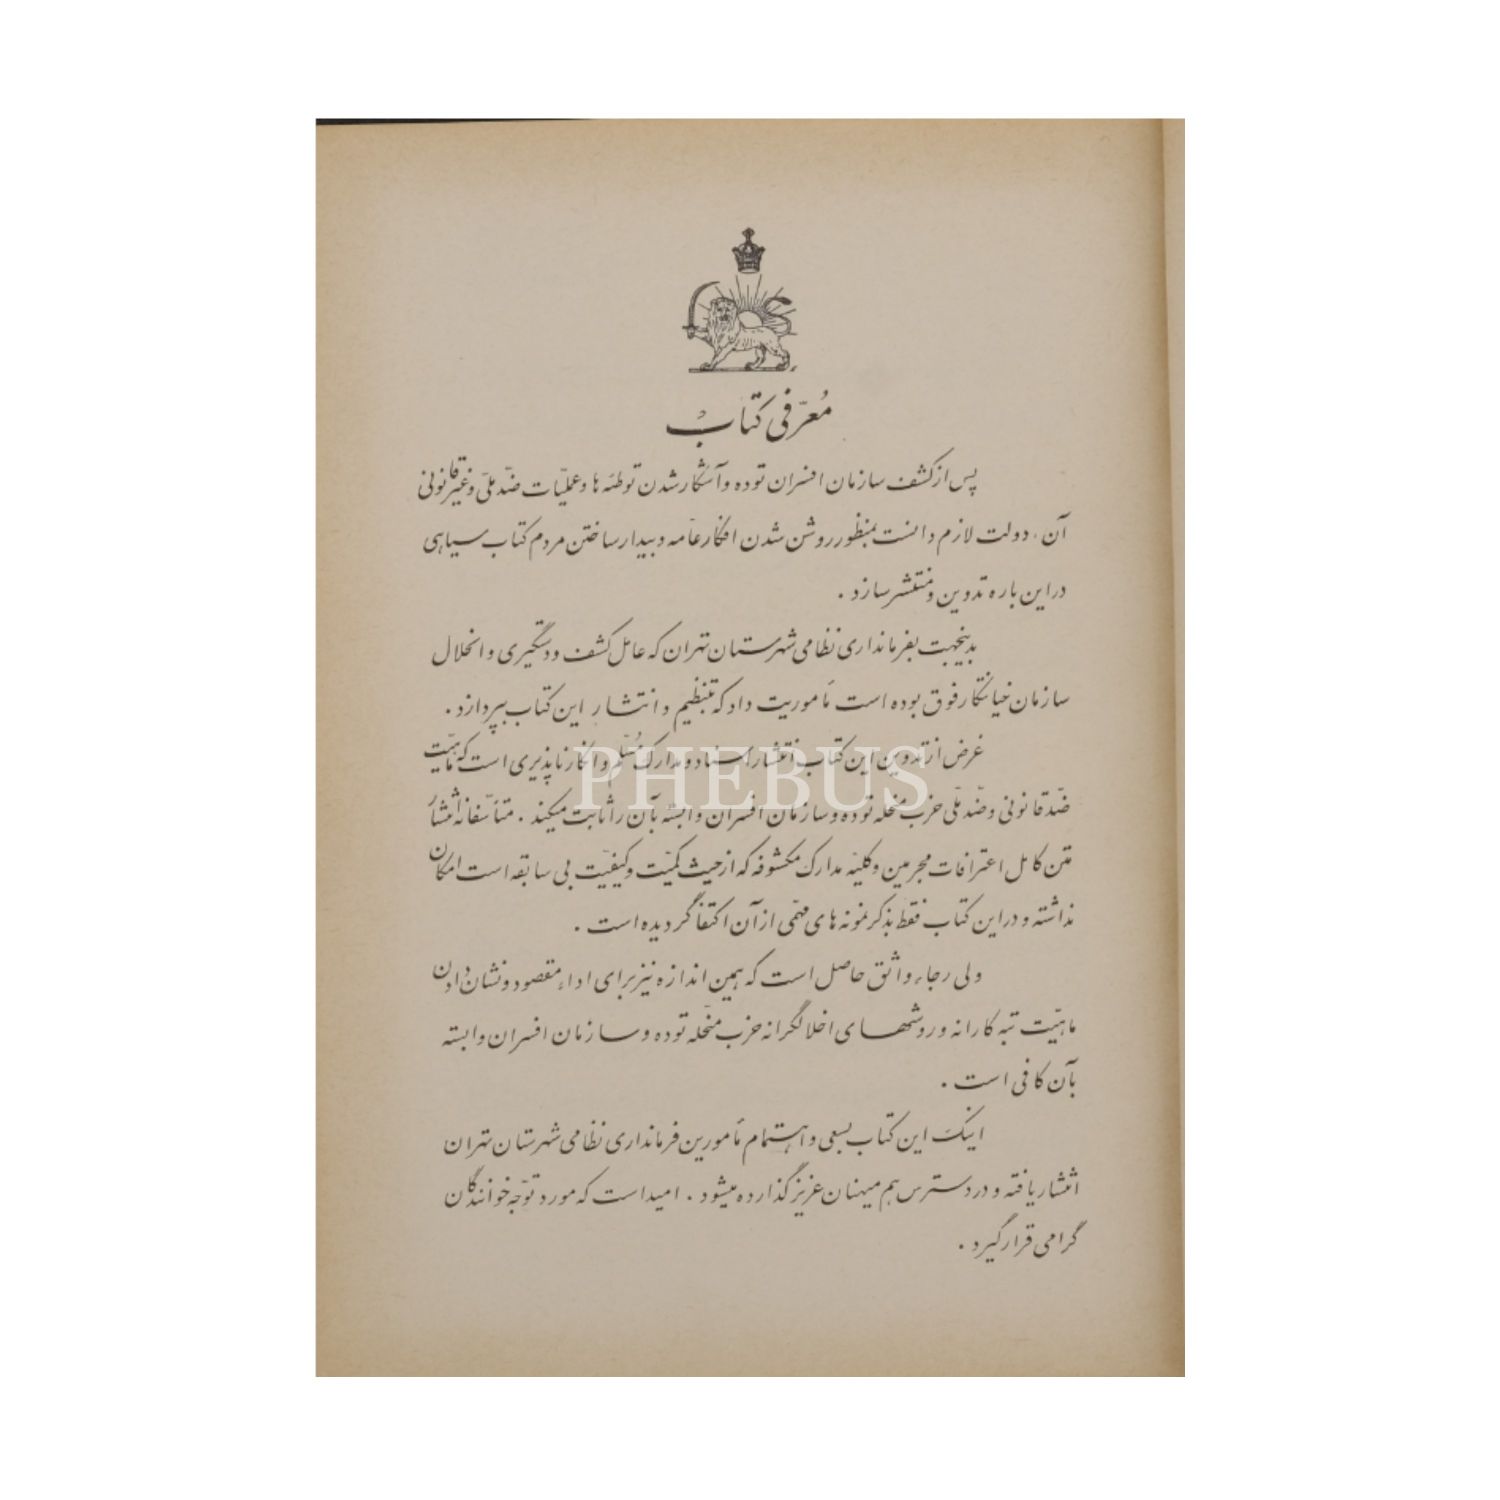 معرّفی کتاب
پس از کشف سازمان افسران توده و آشکار شدن توطئه ها و عملیّات ضدّ ملّی و غیر قانونی
آن، دولت لازم دانست بمنظور روشن شدن افکار عامّه و بیدار ساختن مردم کتاب سیاهی
در این باره تدوین و منتشر سازد .
بدینجهت بفرمانداری نظامی شهرستان تهران که عامل کشف و دستگیری و انحلال
سازمان خیانتکار فوق بوده است مأموریت داد که بتنظیم و انتشار این کتاب بپردازد .
غرض از تدوین این کتاب انتشار اسناد و مدارک مُسلّم و انکار ناپذیری است که ماهیّت
ضدّ قانونی و ضدّ ملّی حزب منحله توده و سازمان افسران وابسته بآن را ثابت میکند . متأسّفانه انتشار
متن کامل اعترافات مجرمین و کلیّه مدارک مکشوفه که از حیث کمیّت و کیفیّت بی سابقه است امکان
نداشته و در این کتاب فقط بذکر نمونه های مهمّی از آن اکتفا گردیده است .
ولی رجاء واثق حاصل است که همین اندازه نیز برای اداء مقصود و نشان دادن
ماهیّت تبه کارانه و روشهای اخلالگرانه حزب منحّله توده و سازمان افسران وابسته
بآن کافی است .
اینک این کتاب بسعی و اهتمام مأمورین فرمانداری نظامی شهرستان تهران
انتشار یافته و در دسترس هم میهنان عزیز گذارده میشود . امید است که مورد توجّه خوانندگان
گرامی قرار گیرد .
PHEBUS